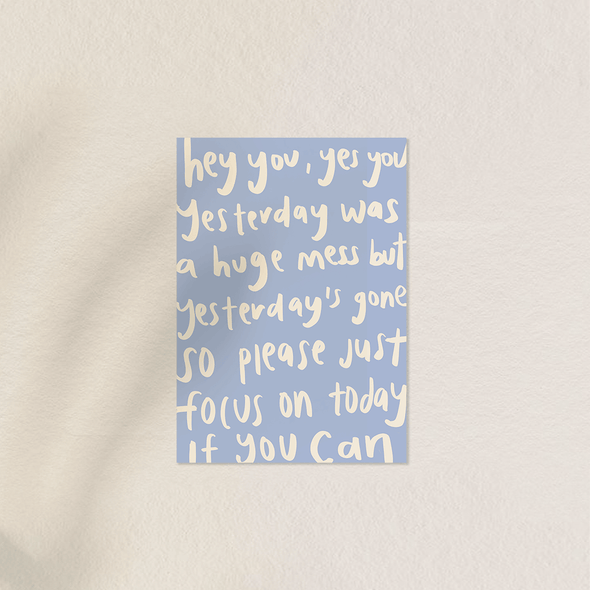 hey you, yes you
yesterday was
a huge mess but
yesterday's gone
so please just
focus on today
If you can